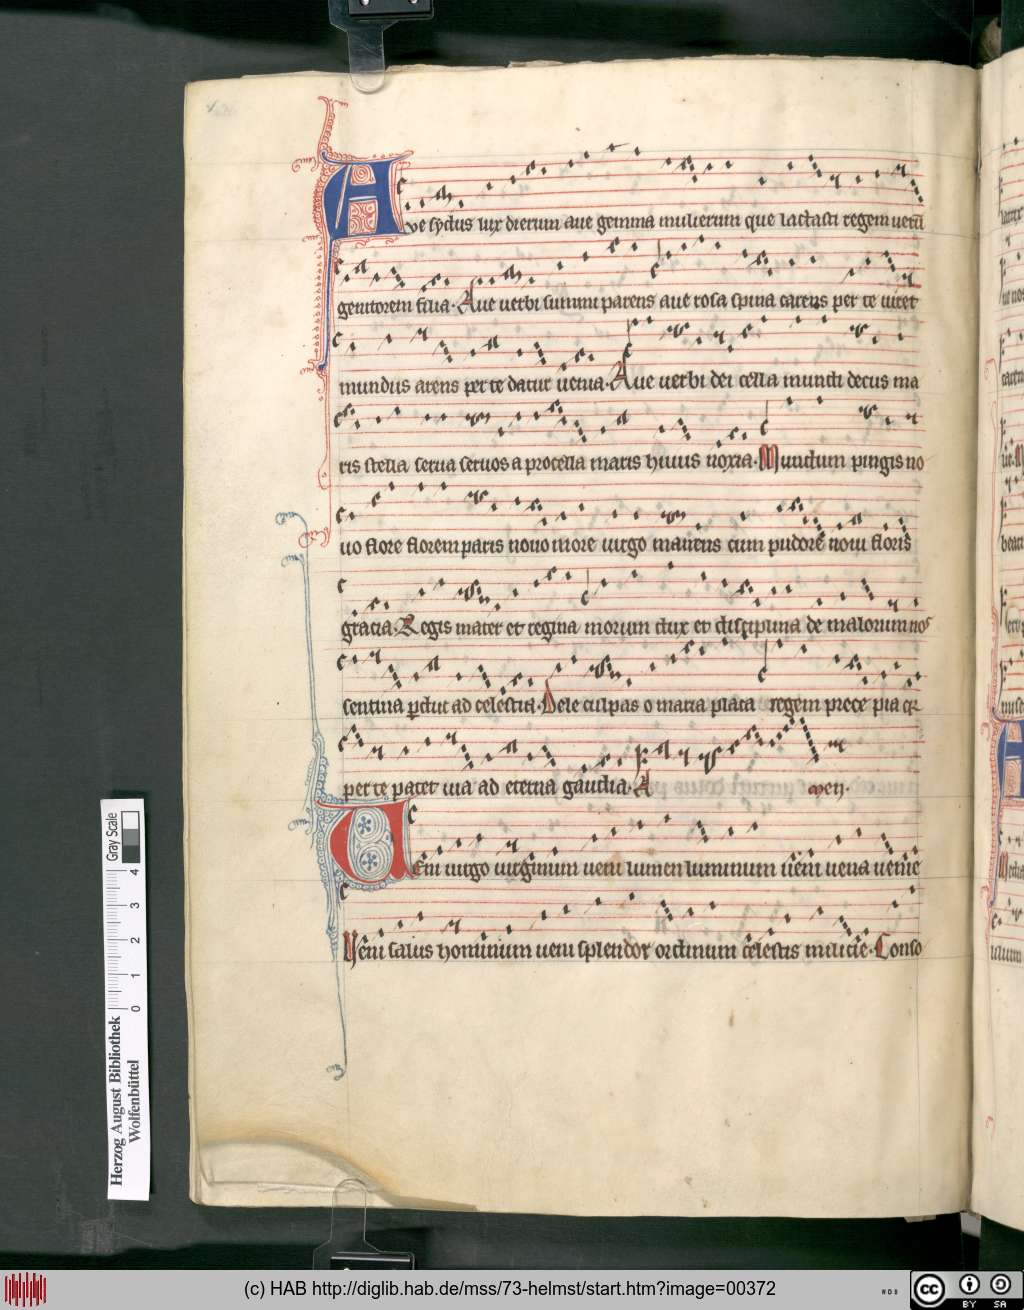 Ave sydus lux dierum aue gemma mulierum que lactasti regem ueru̅
genitorem filia. Aue uerbi summi parens aue rosa spina carens per te uiret
mundus arens per te datur uenia. Aue uerbi dei cella mundi decus ma
ris stella serua seruos a procella maris huius noxia. Mundum pingis no
uo flore florem paris nouo more uirgo manens cum pudore noui floris
gracia. Regis mater et regina morum dux et disciplina de malorum nos
sentina perduc ad celestia. Dele culpas o maria placa regem prece pia
per te patet uia ad eterna gaudia. A men.
Veni uirgo uirginum ueni lumen luminum ueni uena uenie
Veni salus hominum ueni splendor ordinum celestis milicie. Conso
Gray Scale
0 1 2 3 4
Herzog August Bibliothek
Wolfenbüttel
(c) HAB http://diglib.hab.de/mss/73-helmst/start.htm?image=00372
cc BY SA